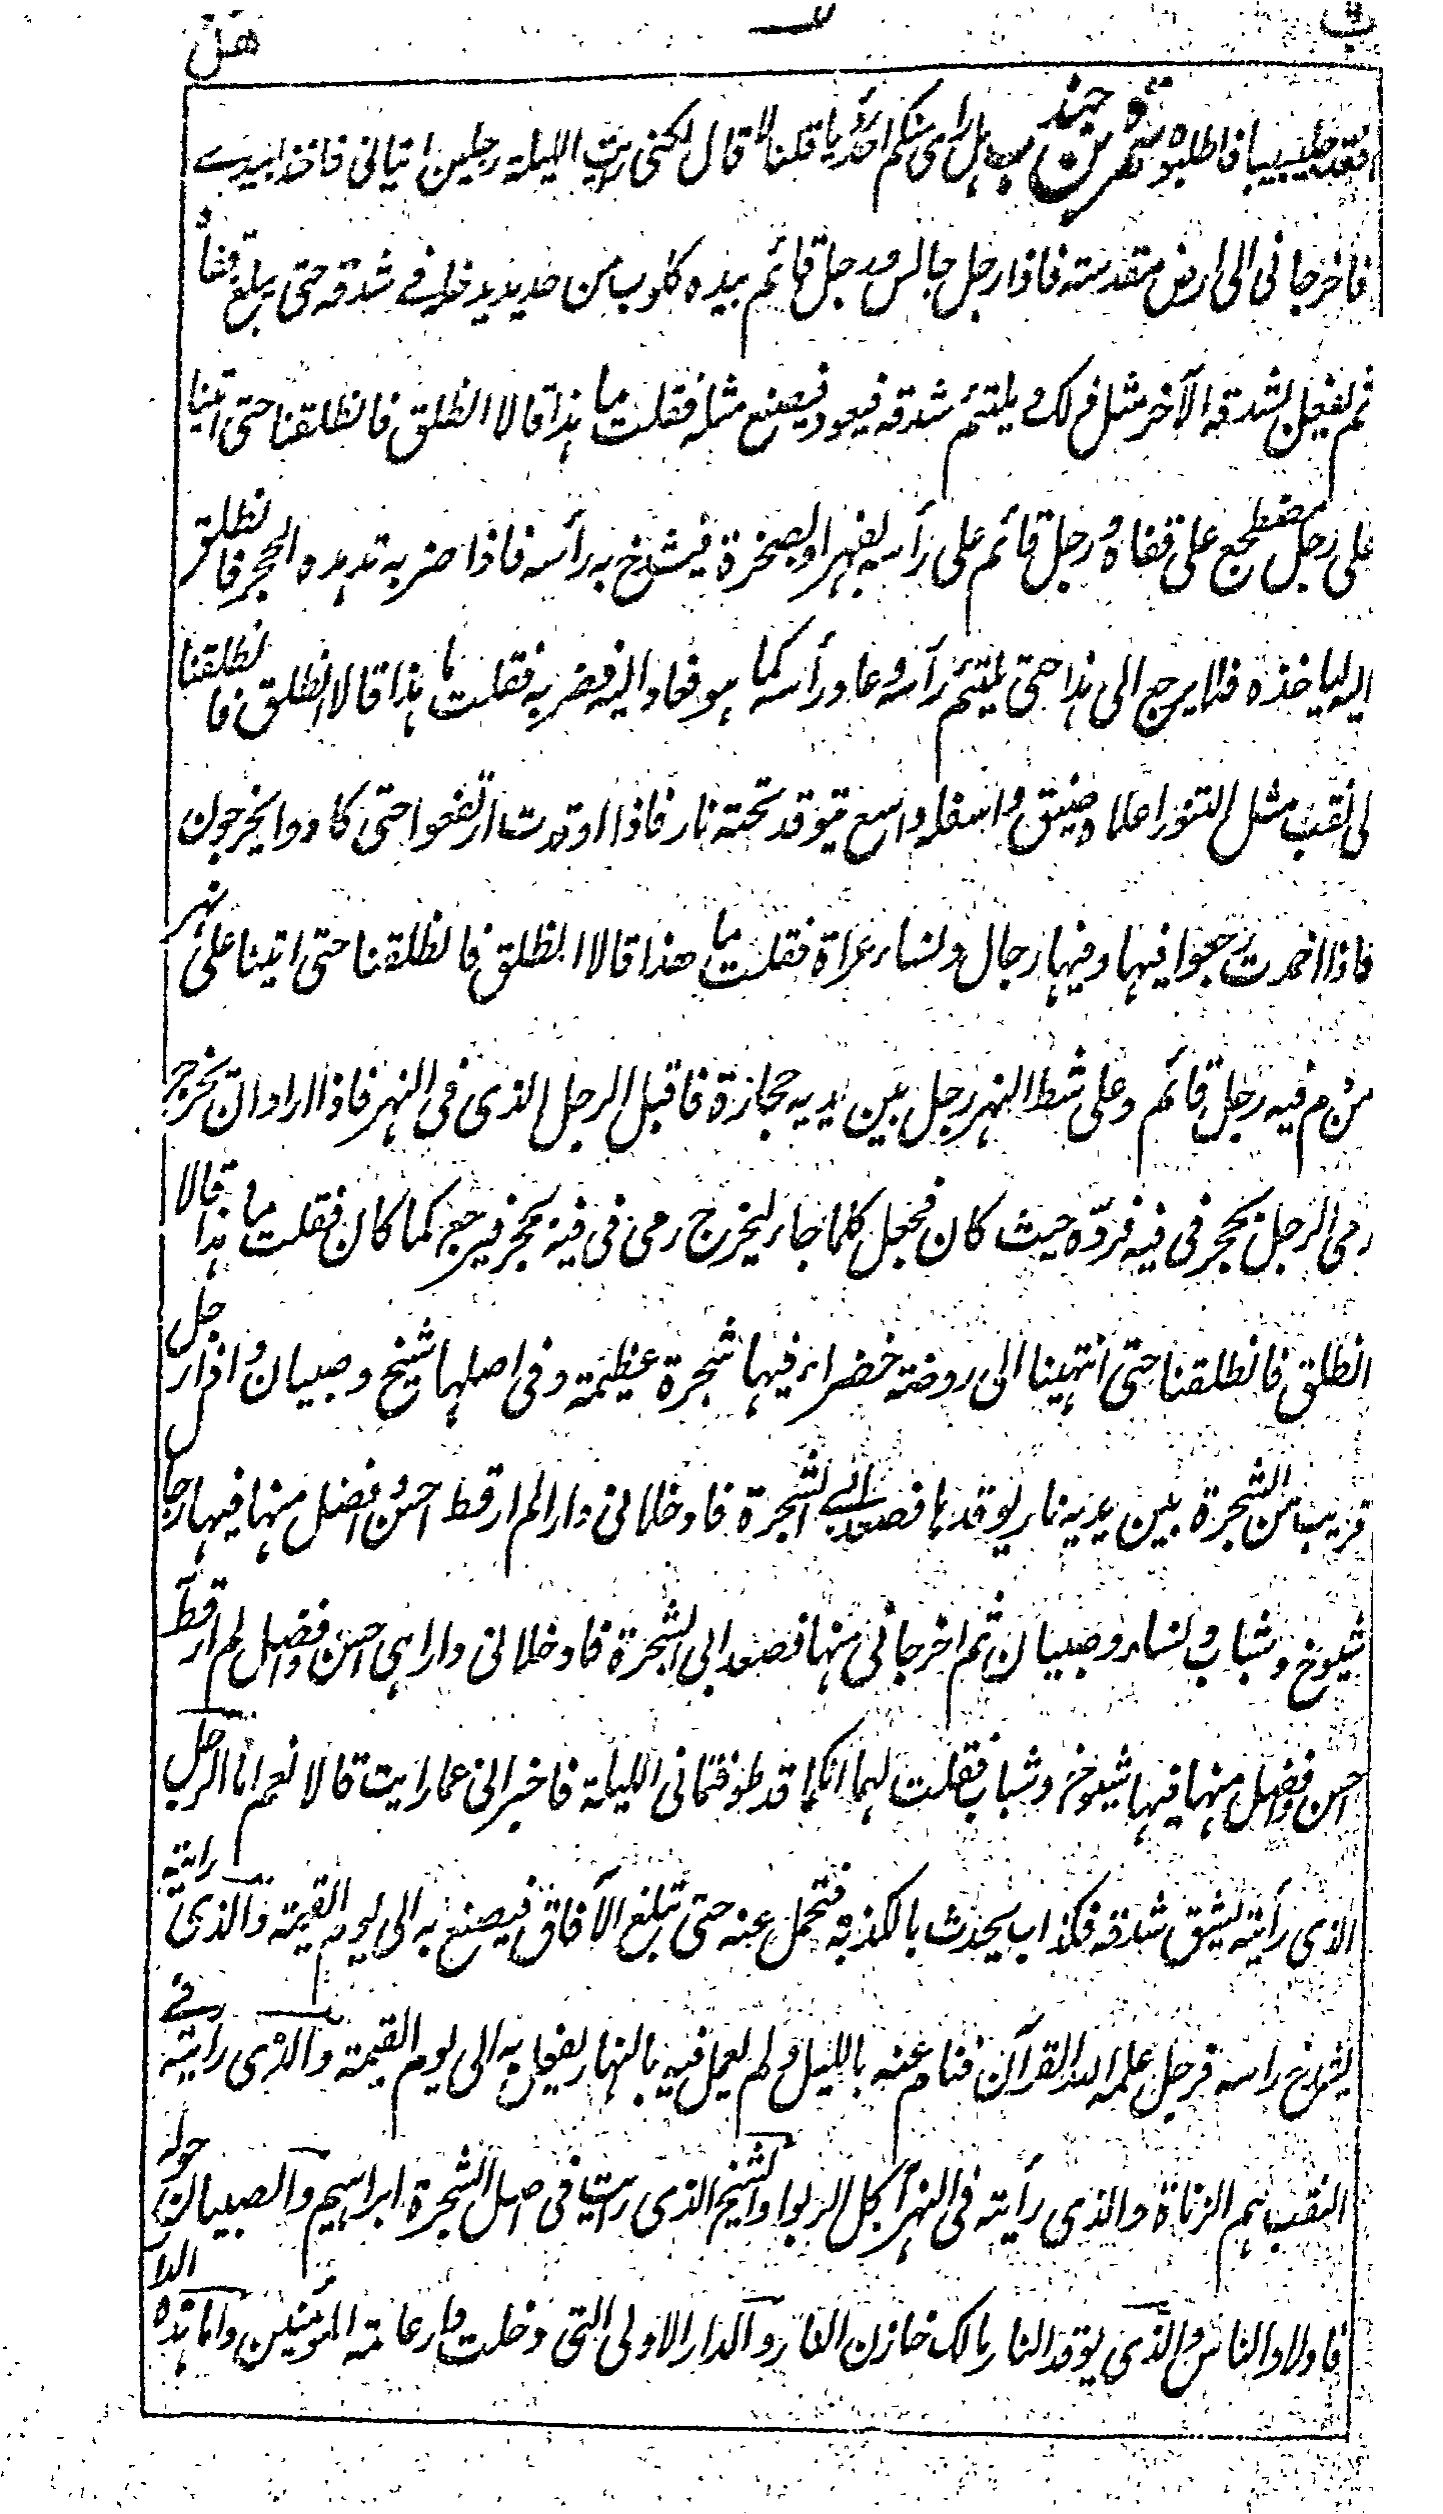 افقد جليبيبا فاطلبوه م ن عن جند ب هل رأى منكم احد رؤيا قلنا لا قال لكنى رايت الليلة رجلين اتيانى فاخذا بيدے
فاخرجانى الى ارض مقدسة فاذا رجل جالس ورجل قائم بيده كلوب من حديد يدخله فے شدقه حتى يبلغ قفاه
ثم يفعل بشدقه الآخر مثل ذلك و يلتئم شدقه فيعود فيصنع مثله فقلت ما هذا قالا انطلق فانطلقنا حتى اتينا
على رجل مضطجع على قفاه و رجل قائم على رأسه بفهر او بصخرة فيشدخ به رأسه فاذا ضربه تدهده الحجر فانطلق
اليه لياخذه فلا يرجع الى هذا حتى يلتئم رأسه وعاد رأسه كما هو فعاد اليه فضربه فقلت ما هذا قالا انطلق فانطلقنا
الى نقب مثل التنور اعلاه ضيق و اسفله واسع يتوقد تحته نار فاذا اوقدت ارتفعوا حتى كادوا يخرجون
فاذا اخمدت رجعوا فيها وفيها رجال و نساء عراة فقلت ما هذا قالا انطلق فانطلقنا حتى اتينا على نهر
من دم فيه رجل قائم وعلى شط النهر رجل بين يديه حجارة فاقبل الرجل الذى فى النهر فاذا اراد ان يخرج
رمى الرجل بحجر فى فيه فردّه حيث كان فجعل كلما جاء ليخرج رمى فى فيه بحجر فيرجع كما كان فقلت ما هذا قالا
انطلق فانطلقنا حتى انتهينا الى روضة خضراء فيها شجرة عظيمة وفى اصلها شيخ وصبيان و اذا رجل
قريب من الشجرة بين يديه نار يوقدها فصعدا بے الشجرة فادخلانى دارا لم ار قط احسن و افضل منها فيها رجال
شيوخ وشباب و نساء وصبيان ثم اخرجانى منها فصعدا بى الشجرة فادخلانى دارا هى احسن وافضل لم ار قط
احسن وافضل منها فيها شيوخ وشباب فقلت لهما انكما قد طوفتمانى الليلة فاخبرانى عما رايت قالا نعم اما الرجل
الذى رأيته يشق شدقه فكذاب يحدث بالكذبة فتحمل عنه حتى تبلغ الآفاق فيصنع به الى يوم القيمة والذى رايته
يشدخ راسه فرجل علمه الله القرآن فنام عنه بالليل و لم يعمل فيه بالنهار يفعل به الى يوم القيمة والذى رايته فے
النقب هم الزناة والذي رأيته فى النهر آكل الربوا والشيخ الذى رايت فى اصل الشجرة ابراهيم والصبيان حوله
فاولاد الناس والذي يوقد النار مالك خازن النار والدار الاولى التى دخلت دار عامة المؤمنين واما هذه الدار